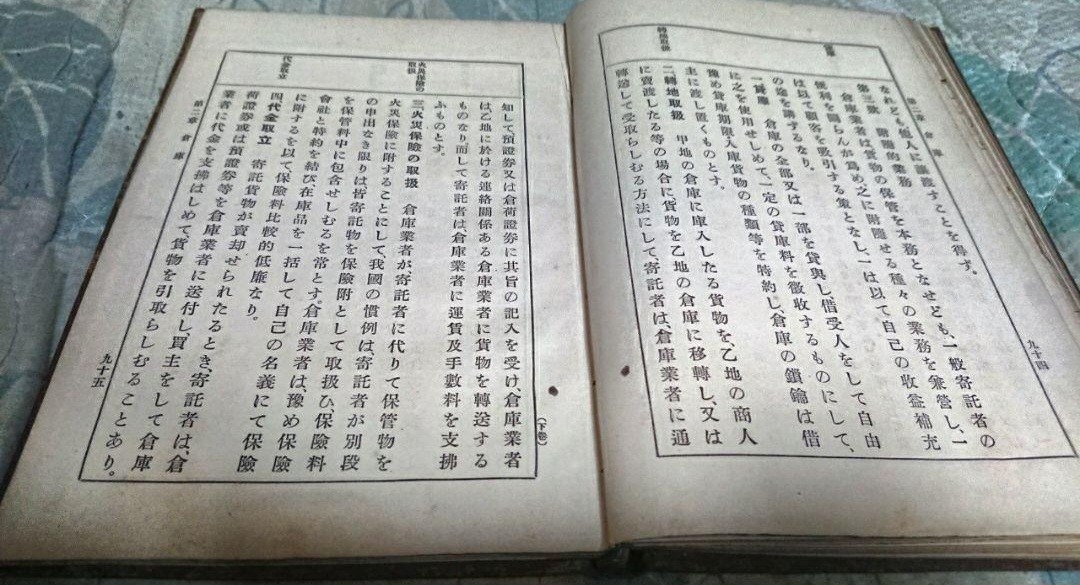 第二章 倉庫
九十四
なれども、他人に讓渡すことを得ず。
第三款 附隨的業務
倉庫業者は貨物の保管を本務となせども、一般寄託者の
便利を圖らんが爲め之に附隨せる種々の業務を兼營し、一
は以て顧客を吸引する策となし、一は以て自己の收益補充
の途を講ずるなり。
一 貸庫 倉庫の全部又は一部を貸與し借受人をして自由
に之を使用せしめて、一定の貸庫料を徵收するものにして、
豫め貸庫期限入庫貨物の種類等を特約し、倉庫の鎖鑰は借
主に渡し置くものとす。
二 轉地取扱 甲地の倉庫に庫入したる貨物を、乙地の商人
に賣渡したる等の場合に、貨物を乙地の倉庫に移轉し、又は
轉送して受取らしむる方法にして、寄託者は、倉庫業者に通
貸庫
轉地取扱
(下卷)
知して預證券又は倉荷證券に其旨の記入を受け、倉庫業者
は、乙地に於ける連絡關係ある倉庫業者に貨物を轉送する
ものなり而して寄託者は、倉庫業者に運賃及手數料を支拂
ふものとす。
三 火災保險の取扱 倉庫業者が寄託者に代りて保管物を
火災保險に附することにして、我國の慣例は、寄託者が別段
の申出なき限りは皆寄託物を保險附として取扱ひ、保險料
を保管料中に包含せしむるを常とす。倉庫業者は、豫め保險
會社と特約を結び在庫品を一括して自己の名義にて保險
に附するを以て保險料比較的低廉なり。
四 代金取立 寄託貨物が賣却せられたるとき、寄託者は、倉
荷證券或は預證券等を倉庫業者に送付し、買主をして倉庫
業者に代金を支拂はしめて貨物を引取らしむることあり。
火災保險の
取扱
代金取立
第二章 倉庫
九十五